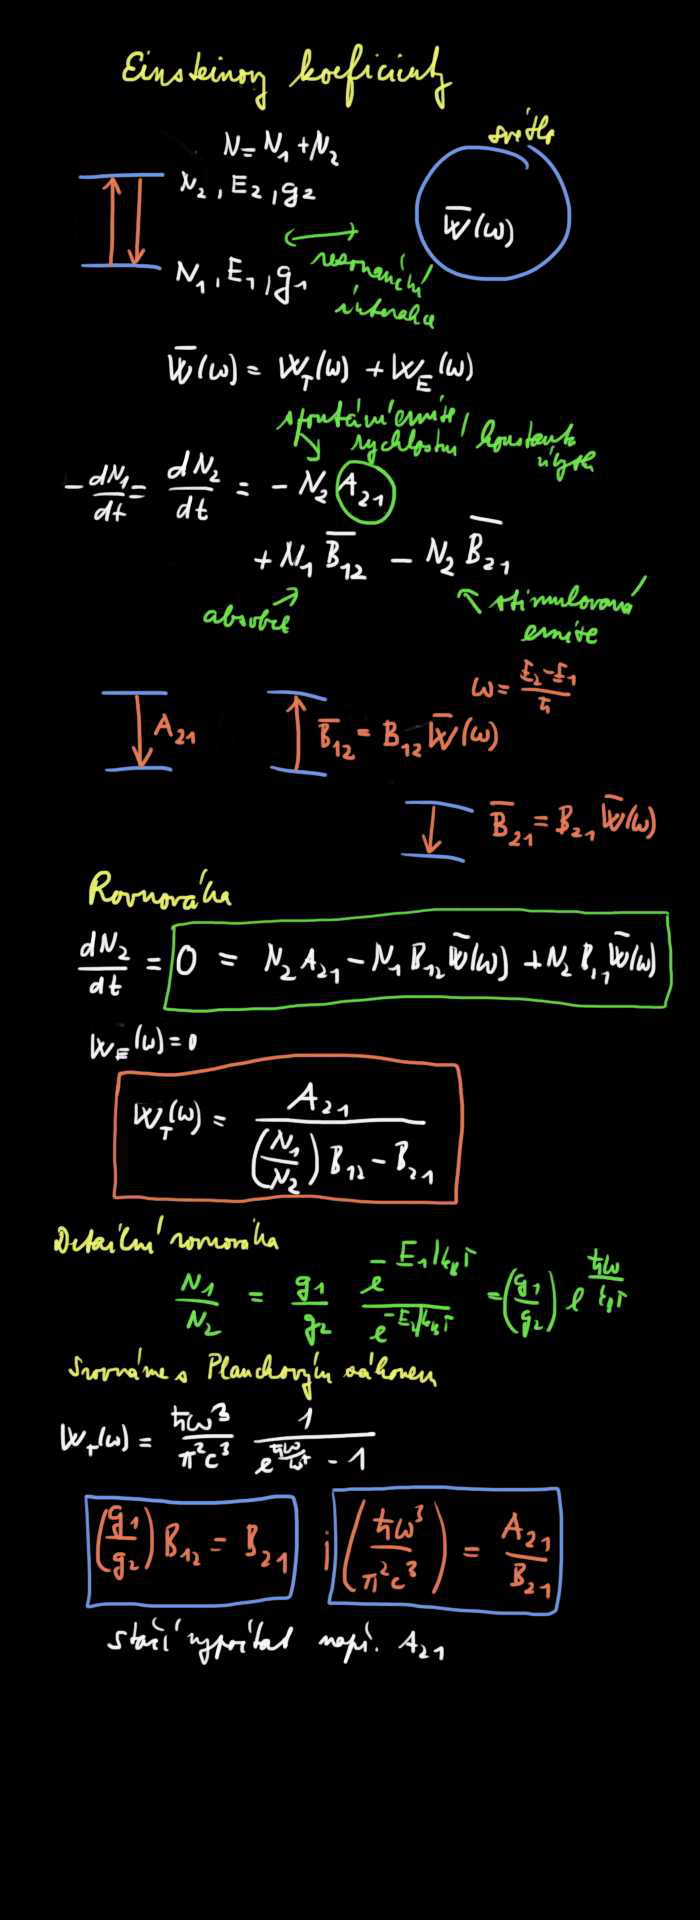 Einsteinovy koeficienty
N = N₁ + N₂
světlo
N₂, E₂, g₂
W̅(ω)
N₁, E₁, g₁
resonanční
interakce
W̅(ω) = W_T(ω) + W_E(ω)
spontánní emise
rychlostní konstanta
-dN₁/dt = dN₂/dt = - N₂ A₂₁
+ N₁ B̅₁₂ - N₂ B̅₂₁
absorbce
stimulovaná
emise
ω = (E₂-E₁)/ħ
A₂₁
B̅₁₂ = B₁₂ W̅(ω)
B̅₂₁ = B₂₁ W̅(ω)
Rovnováha
dN₂/dt = 0 = N₂ A₂₁ - N₁ B₁₂ W̅(ω) + N₂ B₂₁ W̅(ω)
W_E(ω) = 0
W_T(ω) = A₂₁ / ((N₁/N₂) B₁₂ - B₂₁)
Detailní rovnováha
N₁/N₂ = g₁/g₂ e^(-E₁/k_BT) / e^(-E₂/k_BT) = (g₁/g₂) e^(ħω/k_BT)
Srovnáme s Planckovým zákonem
W_T(ω) = ħω³/π²c³ 1/(e^(ħω/k_BT) - 1)
(g₁/g₂) B₁₂ = B₂₁ ; (ħω³/π²c³) = A₂₁/B₂₁
stačí vypočítat např. A₂₁